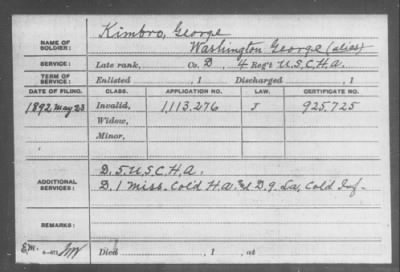 NAME OF SOLDIER: Kimbro, George
Washington George (alias)
SERVICE: Late rank, Co. D, 4 Reg't U.S.C.H.A.
TERM OF SERVICE: Enlisted , 1 Discharged , 1
DATE OF FILING. CLASS. APPLICATION NO. LAW. CERTIFICATE NO.
1892 May 23 Invalid, 1,113,276 J 925,725
Widow,
Minor,
ADDITIONAL SERVICES: D. 5 U.S.C.H.A.
D. 1 Miss. Cold H.A. D. 9 La, Cold Inf.
REMARKS:
Died , 1 , at